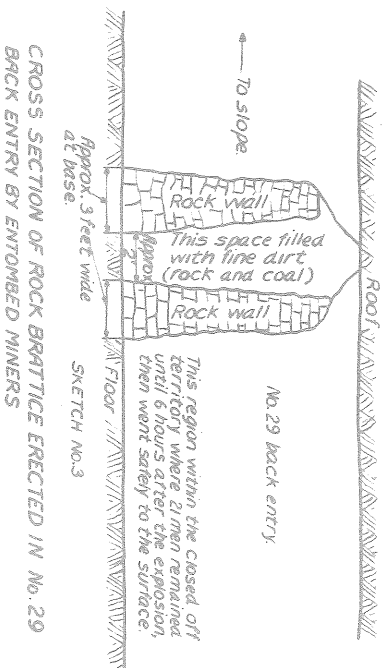 Roof
To slope.
No.29 back entry.
Rock wall
This space filled
with fine dirt
(rock and coal)
Rock wall
Approx.
2'
This region within the closed off
territory where 21 men remained
until 6 hours after the explosion,
then went safely to the surface.
Floor
Approx. 3 feet wide
at base.
SKETCH No.3
CROSS SECTION OF ROCK BRATTICE ERECTED IN No. 29
BACK ENTRY BY ENTOMBED MINERS